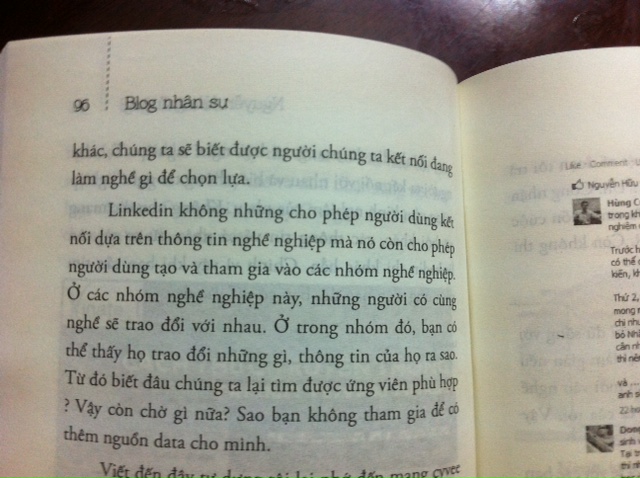 96 Blog nhân sự
khác, chúng ta sẽ biết được người chúng ta kết nối đang
làm nghề gì để chọn lựa.
Linkedin không những cho phép người dùng kết
nối dựa trên thông tin nghề nghiệp mà nó còn cho phép
người dùng tạo và tham gia vào các nhóm nghề nghiệp.
Ở các nhóm nghề nghiệp này, những người có cùng
nghề sẽ trao đổi với nhau. Ở trong nhóm đó, bạn có
thể thấy họ trao đổi những gì, thông tin của họ ra sao.
Từ đó biết đâu chúng ta lại tìm được ứng viên phù hợp
? Vậy còn chờ gì nữa? Sao bạn không tham gia để có
thêm nguồn data cho mình.
Viết đến đây tự dưng tôi lại nhớ đến mạng cyvee
Like · Comment ·
Nguyễn Hữu
Hùng
trong
nghiệm
Trước
có thể
kiến,
Thứ 2,
mong
chi
bỏ
cần
thì
và
anh
22
Dong
sinh
Tại
thì